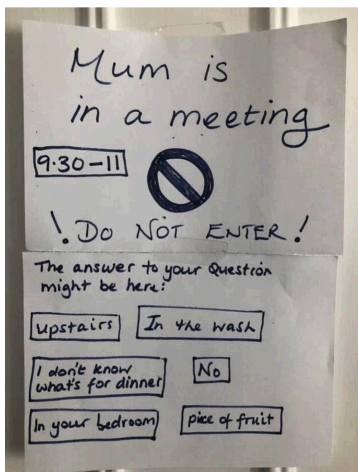 Mum is
in a meeting
9.30-11
! DO NOT ENTER !
The answer to your Question
might be here:
upstairs In the wash
I don't know
what's for dinner No
In your bedroom pice of fruit